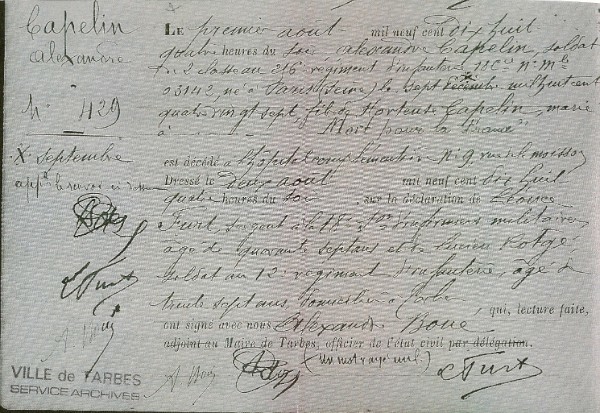 Capelin
Alexandre
N° 429
X septembre
Le premier aout mil neuf cent dix huit
quatre heures du soir Alexandre Capelin, soldat
de 2e classe au 216e régiment d'infanterie, 18e Cie No Mle
03142, né à Paris (Seine) le sept X décembre mil huit cent
quatre vingt sept, fils de Hortense Capelin, marié
à "Mort pour la France"
est décédé à l'hôpital complémentaire No 9, rue
Dressé le deux aout mil neuf cent dix huit
quatre heures du soir, sur la déclaration de
Furt, sergent à la 18e Son d'infirmiers militaires
âgé de quarante sept ans et de Lucien Rotgé
soldat au 12e régiment d'infanterie, âgé de
trente sept ans, domiciliés à Tarbes
qui, lecture faite,
ont signé avec nous Alexandre Boué
adjoint au Maire de Tarbes, officier de l'état civil par délégation.
(un mot rayé nul)
Furt
VILLE de TARBES
SERVICE ARCHIVES